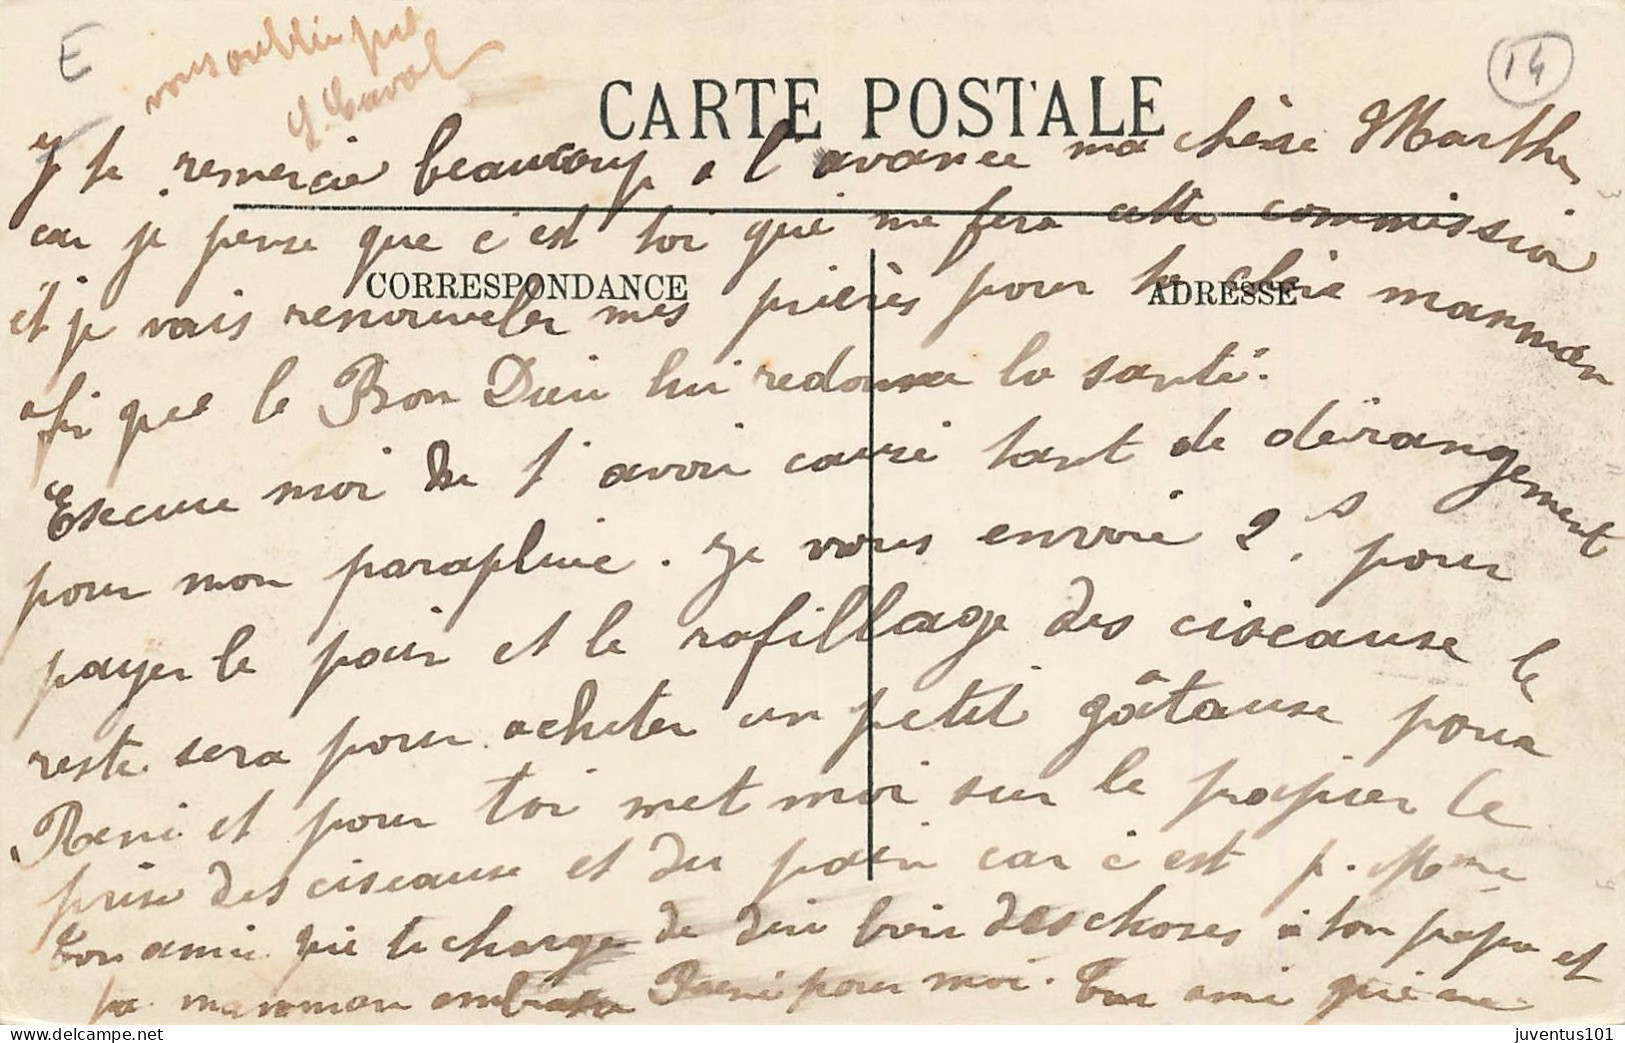 E
14
vous oublie pas
CARTE POSTALE
Je te remercie beaucoup a l'avance ma chère Marthe
car je pense que c'est toi qui me fera cette commission
et je vais renouveler mes prières pour ta chère manman
CORRESPONDANCE
ADRESSE
afi que le Bon Dieu lui redonne la santé.
Excuse moi de t'avoir causé tant de dérangement
pour mon parapluie. Je vous envoie 2.s pour
payer le pair et le rafillage des ciseause le
reste sera pour acheter un petit gâtause pour
René et pour toi met moi sur le papier le
prise des ciseause et du pair car c'est p. Mme
Ton amie qui te charge de dir bien des choses à ton papa et
ta manman embrasse René pour moi. Ton amie qui
juventus101